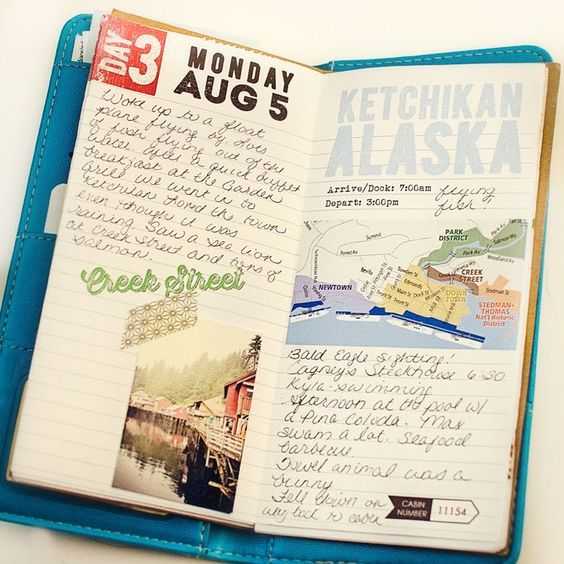 DAY 3
MONDAY
AUG 5
Woke up to a float
plane flying by. Lots
of fish flying out of the
water. After a quick buffet
breakfast at the Garden
Grille we went in to
Ketchikan. Loved the town
even though it was
raining. Saw a sea lion
at Creek Street and tons of
salmon.
Creek Street
KETCHIKAN
ALASKA
Arrive/Dock: 7:00am
Depart: 3:00pm
flying
fish!
PARK
DISTRICT
CREEK
STREET
NEWTOWN
DOWN
TOWN
STEDMAN-
THOMAS
Nat'l Historic
District
Bald Eagle Sighting!
Cagney's Steakhouse 6:30
Kyla swimming
Afternoon at the pool w/
a Pina Colada. Max
swam a lot. Seafood
barbecue
Towel animal was a
bunny
Fell down on
way back to cabin
CABIN
NUMBER 11154